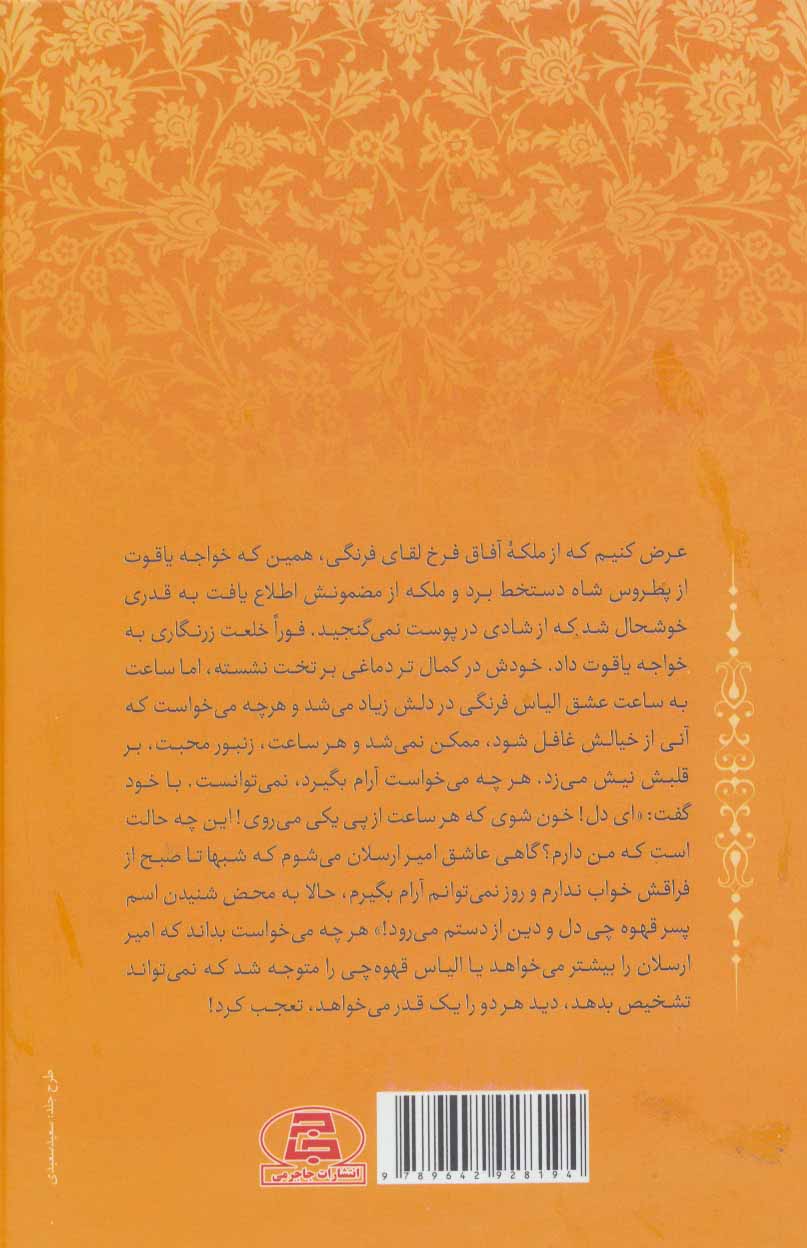 عرض کنیم که از ملکهٔ آفاق فرخ لقای فرنگی، همین که خواجه یاقوت
از پطروس شاه دستخط برد و ملکه از مضمونش اطلاع یافت به قدری
خوشحال شد که از شادی در پوست نمی‌گنجید. فوراً خلعت زرنگاری به
خواجه یاقوت داد. خودش در کمال تر دماغی بر تخت نشسته، اما ساعت
به ساعت عشق الیاس فرنگی در دلش زیاد می‌شد و هرچه می‌خواست که
آنی از خیالش غافل شود، ممکن نمی‌شد و هر ساعت، زنبور محبت، بر
قلبش نیش می‌زد. هر چه می‌خواست آرام بگیرد، نمی‌توانست. با خود
گفت: «ای دل! خون شوی که هر ساعت از پی یکی می‌روی! این چه حالت
است که من دارم؟ گاهی عاشق امیر ارسلان می‌شوم که شبها تا صبح از
فراقش خواب ندارم و روز نمی‌توانم آرام بگیرم، حالا به محض شنیدن اسم
پسر قهوه چی دل و دین از دستم می‌رود!» هر چه می‌خواست بداند که امیر
ارسلان را بیشتر می‌خواهد یا الیاس قهوه‌چی را متوجه شد که نمی‌تواند
تشخیص بدهد، دید هر دو را یک قدر می‌خواهد، تعجب کرد!
طرح جلد: سعید سعیدی
انتشارات جاجرمی
9 789642 928194